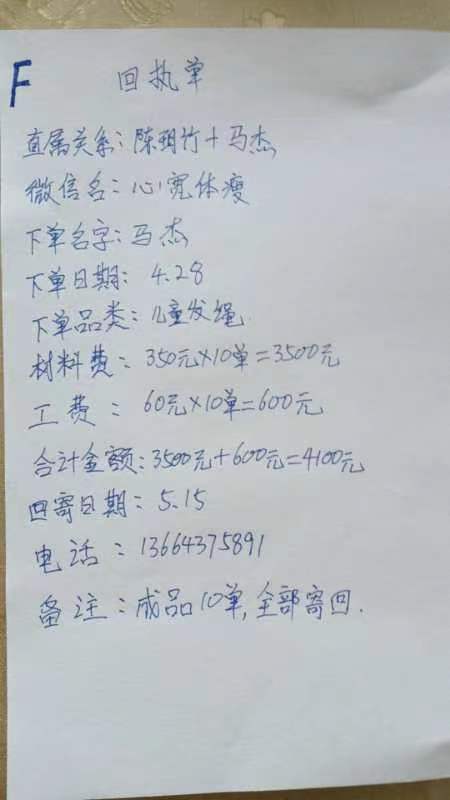 F 回执单
直属关系：陈玥竹+马杰
微信名：心宽体瘦
下单名字：马杰
下单日期：4.28
下单品类：儿童发绳
材料费：350元×10单=3500元
工费：60元×10单=600元
合计金额：3500元+600元=4100元
回寄日期：5.15
电话：13664375891
备注：成品10单，全部寄回.